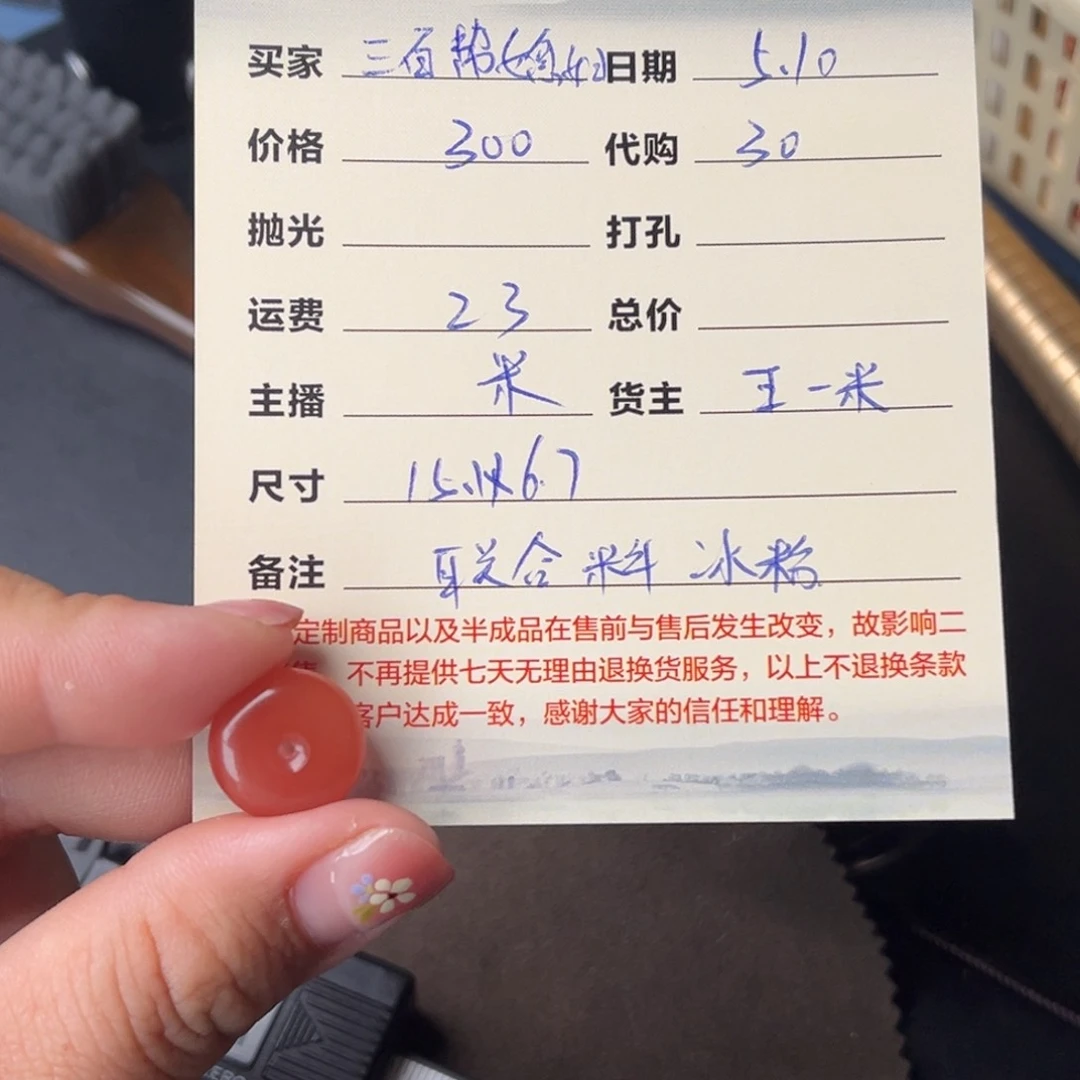 买家 三百帮 日期 5.10
价格 300 代购 30
抛光 打孔
运费 23 总价
主播 米 货主 王一米
尺寸 15.1x6.7
备注 联合料 冰粉
定制商品以及半成品在售前与售后发生改变，故影响二
不再提供七天无理由退换货服务，以上不退换条款
客户达成一致，感谢大家的信任和理解。